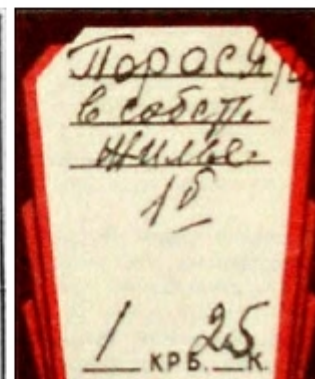 Порося
в собст.
жилье.
1б
1 КРБ. 25 К.